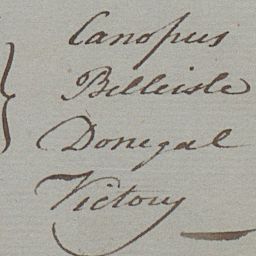 Canopus
Belleisle
Donegal
Victory